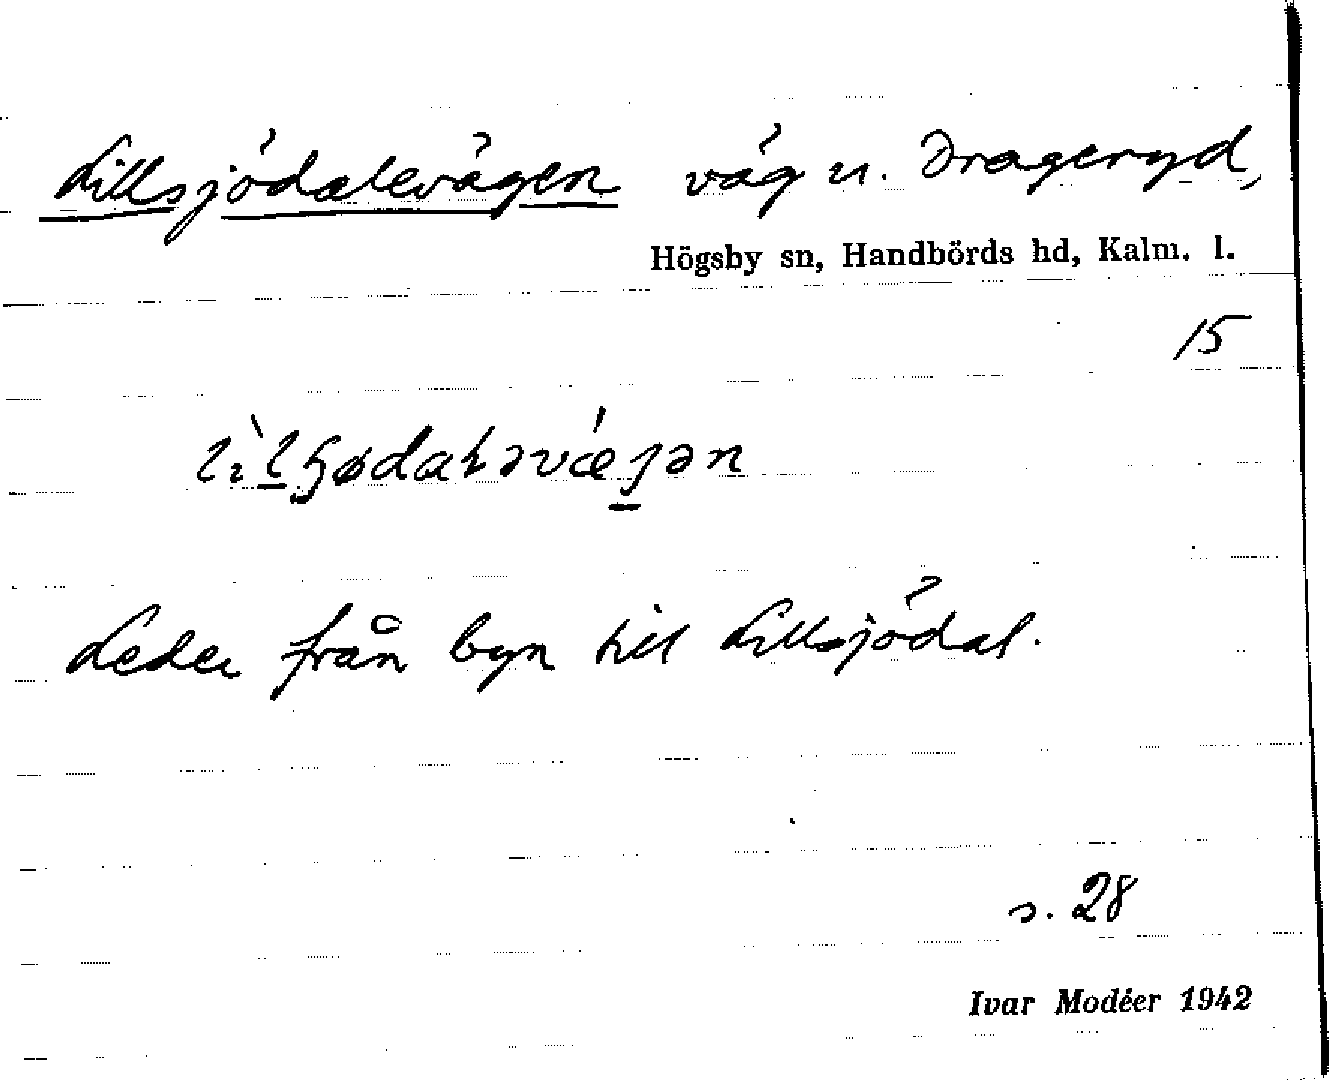 Lillsjödalevägen väg u. Drageryd,
Högsby sn, Handbörds hd, Kalm. l.
15
Leder från byn till Lillsjödal.
s. 28
Ivar Modéer 1942